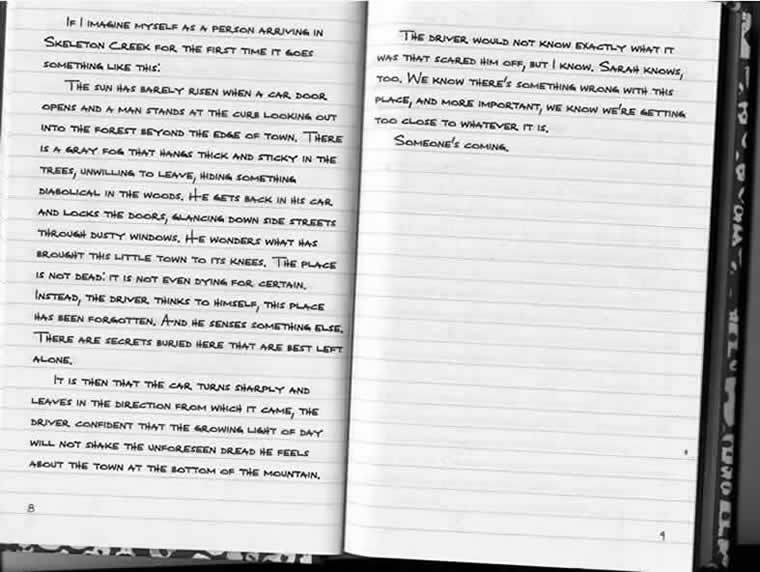 If I imagine myself as a person arriving in
Skeleton Creek for the first time it goes
something like this:
The sun has barely risen when a car door
opens and a man stands at the curb looking out
into the forest beyond the edge of town. There
is a gray fog that hangs thick and sticky in the
trees, unwilling to leave, hiding something
diabolical in the woods. He gets back in his car
and locks the doors, glancing down side streets
through dusty windows. He wonders what has
brought this little town to its knees. The place
is not dead: it is not even dying for certain.
Instead, the driver thinks to himself, this place
has been forgotten. And he senses something else.
There are secrets buried here that are best left
alone.
It is then that the car turns sharply and
leaves in the direction from which it came, the
driver confident that the growing light of day
will not shake the unforeseen dread he feels
about the town at the bottom of the mountain.
8
The driver would not know exactly what it
was that scared him off, but I know. Sarah knows,
too. We know there's something wrong with this
place, and more important, we know we're getting
too close to whatever it is.
Someone's coming.
9